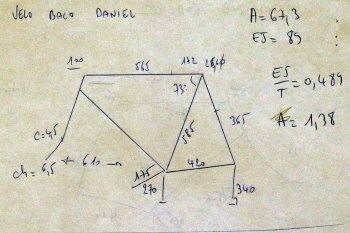 VELO BACO DANIEL
A = 67,3
EJ = 89
EJ/T = 0,489
A = 1,38
100
565
172
73°
585
365
C = 4,5
ch = 6,5
610
175
270
420
340